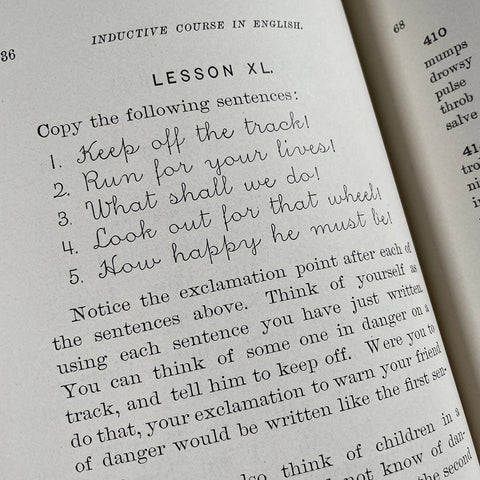 36
INDUCTIVE COURSE IN ENGLISH.
LESSON XL.
Copy the following sentences:
1. Keep off the track!
2. Run for your lives!
3. What shall we do!
4. Look out for that wheel!
5. How happy he must be!
Notice the exclamation point after each of
the sentences above. Think of yourself as
using each sentence you have just written.
You can think of some one in danger on a
track, and tell him to keep off. Were you to
do that, your exclamation to warn your friend
of danger would be written like the first sen-
think of children in a
not know of dan-
the second
68
410
mumps
drowsy
pulse
throb
salve